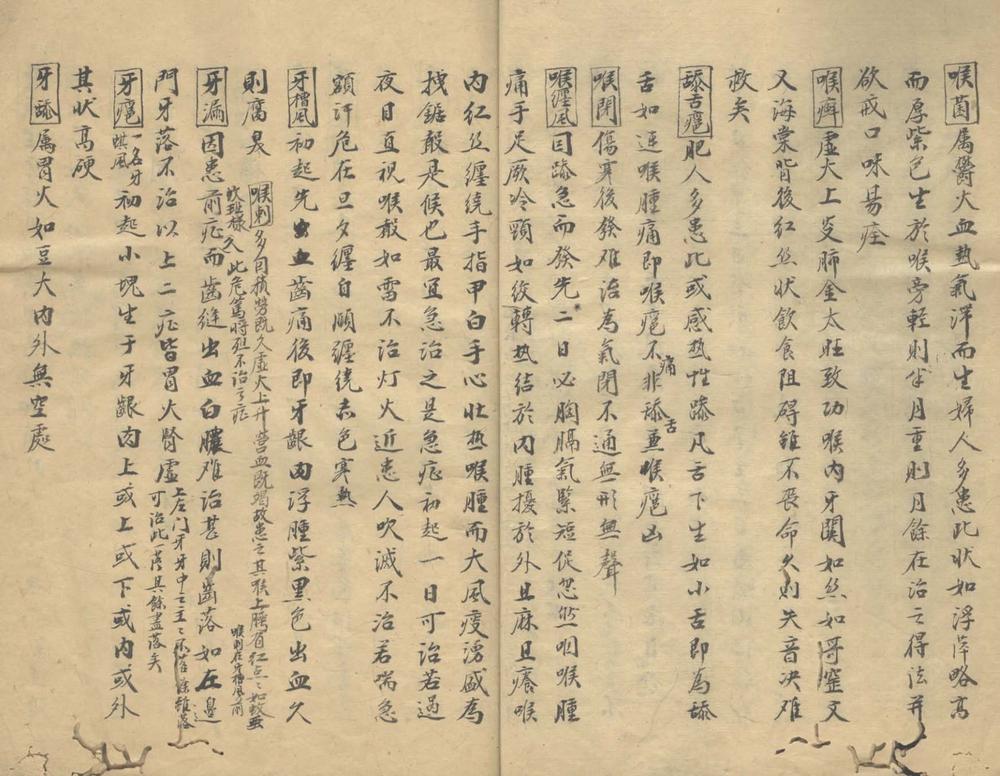 喉菌屬鬱火血热氣滯而生婦人多患此狀如浮萍略高
而厚紫色生於喉旁輕則半月重則月餘在治之得法并
欲戒口味易痊
喉癣虛火上炎肺金太旺致功喉内牙關如丝如哥窑文
又海棠背後紅丝狀飲食阻碍雖不喪命久則失音决难
救矣
舔舌瘟肥人多患此或感热性燥凡舌下生如小舌即為舔
舌如連喉腫痛即喉瘟不痛非舔舌兼喉瘟凶
喉閉傷寒後發难治為氣閉不通無形無聲
喉纏風因燥急而發先二日必胸膈氣緊短促忽然咽喉腫
痛手足厥冷頸如絞轉热结於内腫擾於外且麻且癢喉
内紅丝纏绕手指甲白手心壮热喉腫而大風痰湧盛為
拽鋸聲是候也最宜急治之是急症初起一日可治若過
夜目直視喉聲如雷不治灯火近患人吹滅不治若喘急
額汗危在旦夕纏自頤纏绕赤色寒热
牙槽風初起先出血齒痛後即牙齦肉浮腫紫黑色出血久
則腐臭
喉刺多因積勞既久虛火上升营血既竭故患之其喉上腭有紅点之如蚊
班樣久此危篤將殂不治之症
喉刺在牙槽風前
牙漏因患前症而齒缝出血白膿难治甚則齒落如左邊
門牙落不治以上二症皆胃火腎虛
上左门牙牙中之主主不落餘雖落
可治此一落其餘盡落矣
牙瘟一名牙蜞風初起小塊生于牙齦肉上或上或下或内或外
其狀高硬
牙舔屬胃火如豆大内外無定處